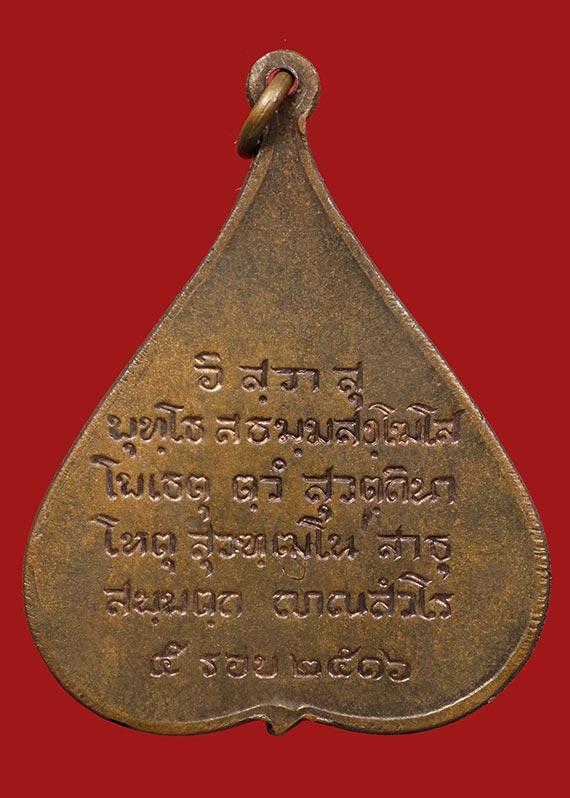 อิ สฺวา สุ
พุทฺโธ สธมฺมสงฺโฆโส
โพเธตุ ตฺวํ สุวตฺถินา
โหตุ สุวฑฺฒโน สาธุ
สมฺมตฺถ ญาณสํวโร
๕ รอบ ๒๕๑๖